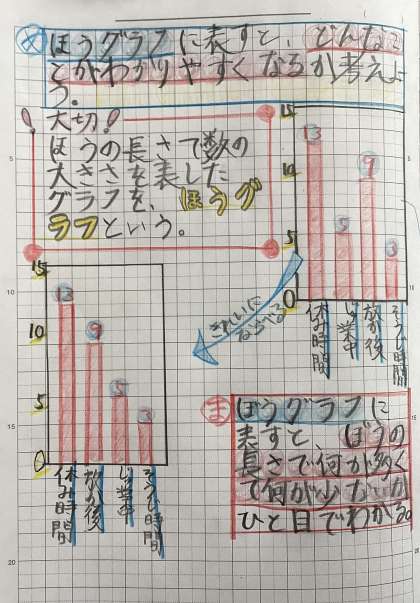 め ぼうグラフに表すと、どんなこ
とがわかりやすくなるか考えよ
う。
！大切！
ぼうの長さで数の
大きさを表した
グラフを、ぼうグ
ラフという。
15
10
5
0
13
5
9
3
休み時間
じゅ業中
放か後
そうじ時間
きれいに
ならべる
15
10
5
0
13
9
5
3
休み時間
放か後
じゅ業中
そうじ時間
ま ぼうグラフに
表すと ぼうの
長さで何が多く
て何が少ないか
ひと目でわかる。
5
10
15
20
10
15
20